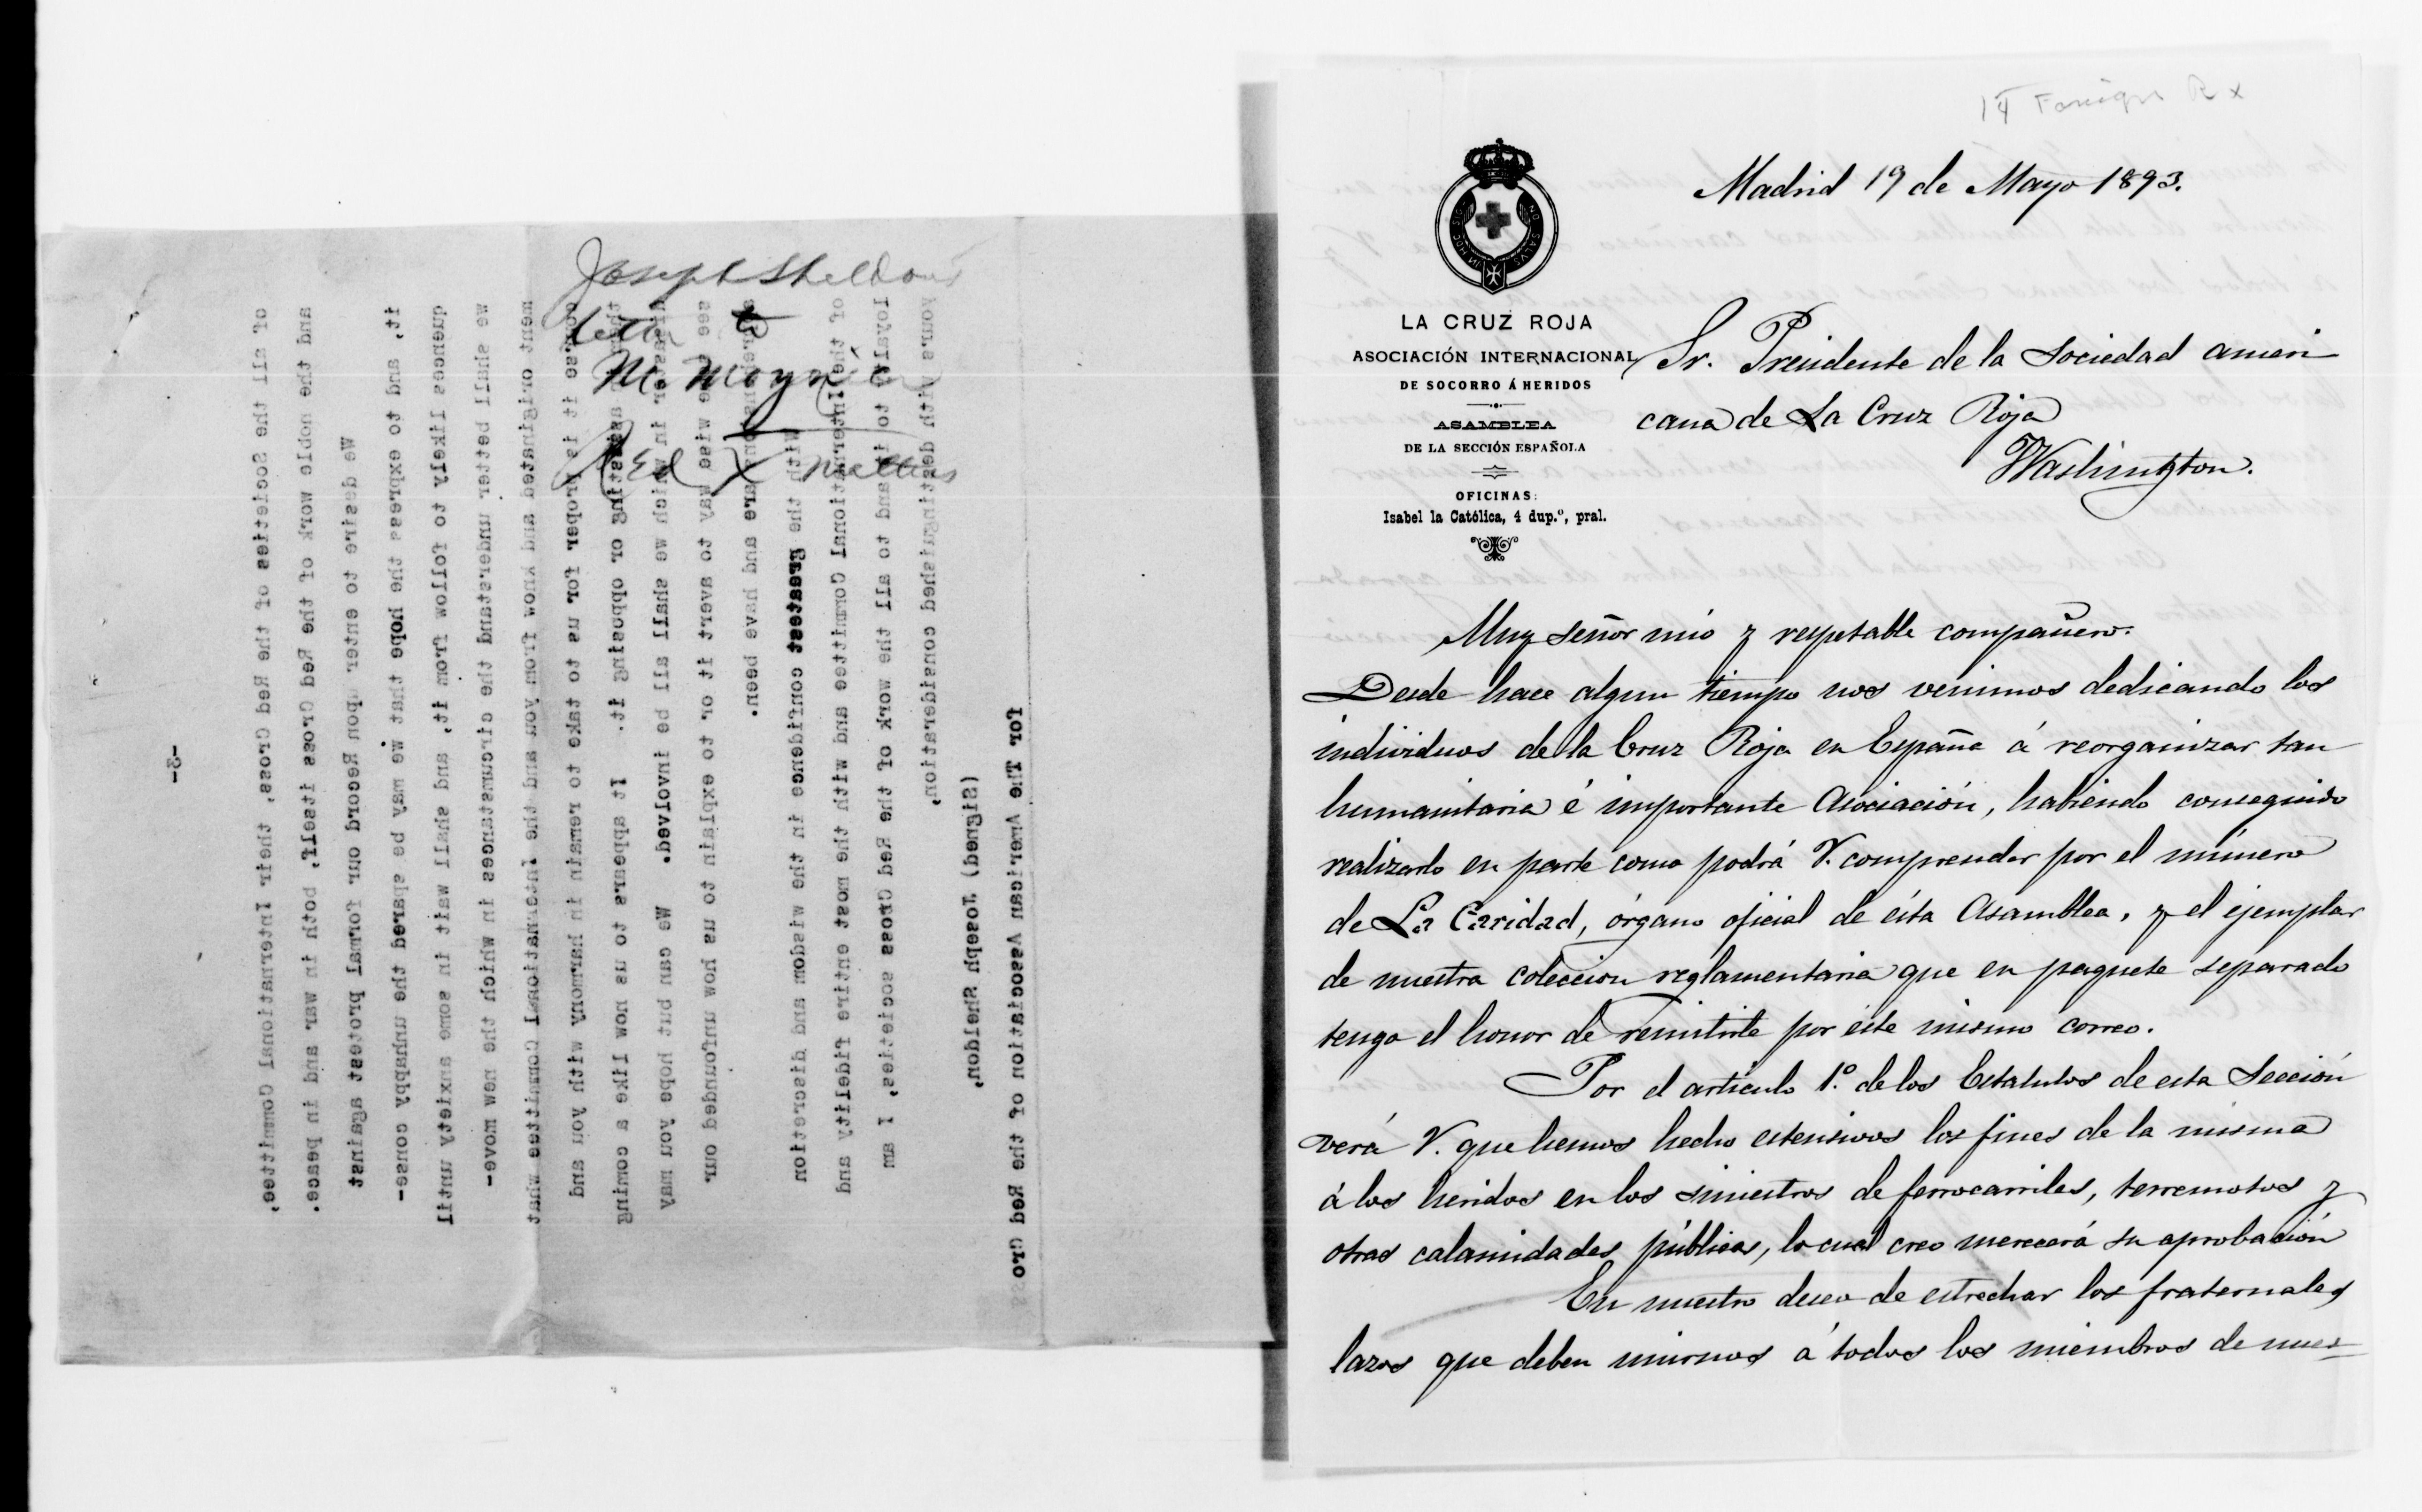 Joseph Sheldon's
letter to
M. Moynier
Red X matters
-3-
of all the Societies of the Red Cross, their International Committee,
and the noble work of the Red Cross itself, both in war and in peace.
We desire to enter upon Record our formal protest against
it, and to express the hope that we may be spared the unhappy conse-
quences likely to follow from it, and shall wait in some anxiety until
we shall better understand the circumstances in which the new move-
ment originated and know from you and the International Committee what
course it is proper for us to take to remain in harmony with you and
them in assisting or opposing it. It appears to us now like a coming
disaster in which we shall all be involved. We can but hope you may
see the wise way to avert it or to explain to us how unfounded our
apprehensions are and have been.
With the greatest confidence in the wisdom and discretion
of the International Committee and with the most entire fidelity and
loyalty to it and to all the work of the Red Cross societies, I am
yours with destinguished consideration,
(Signed) Joseph Sheldon,
for The American Association of the Red Cross
14 Foreign R x
Madrid 19 de Mayo 1893.
IN HOC SIGNO SALUS
LA CRUZ ROJA
ASOCIACIÓN INTERNACIONAL
DE SOCORRO Á HERIDOS
ASAMBLEA
DE LA SECCIÓN ESPAÑOLA
OFICINAS:
Isabel la Católica, 4 dup.º, pral.
Sr. Presidente de la Sociedad ameri
cana de La Cruz Roja
Washington.
Muy señor mio y respetable compañero.
Desde hace algun tiempo nos venimos dedicando los
individuos de la Cruz Roja en España á reorganizar tan
humanitaria é importante Asociación, habiendo conseguido
realizarlo en parte como podrá V. comprender por el número
de La Caridad, órgano oficial de ésta Asamblea, y el ejemplar
de nuestra colección reglamentaria que en paquete separado
tengo el honor de remitirle por éste mismo correo.
Por el artículo 1.º de los Estatutos de esta Sección
verá V. que hemos hecho estensivos los fines de la misma
á los heridos en los siniestros de ferrocarriles, terremotos y
otras calamidades públicas, lo cual creo merecerá su aprobación
En nuestro deseo de estrechar los fraternales
lazos que deben unirnos á todos los miembros de nues-